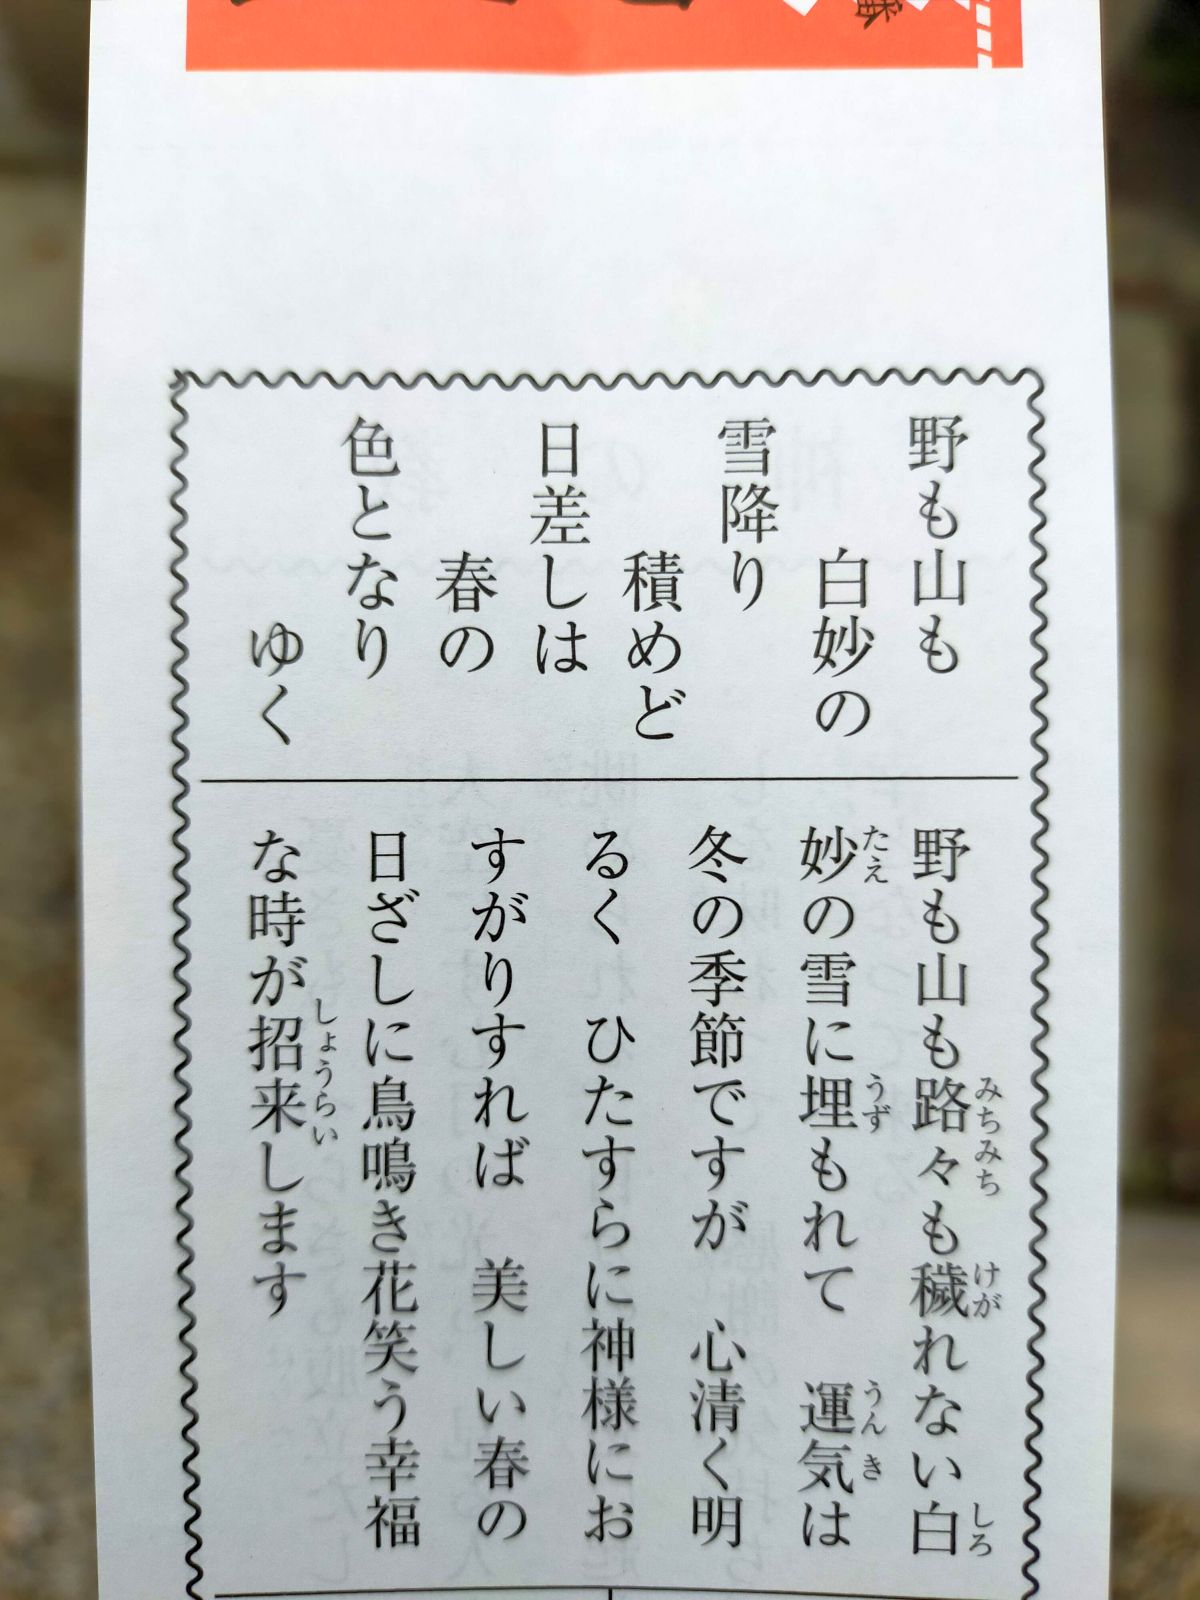 野も山も
白妙の
雪降り
積めど
日差しは
春の
色となり
ゆく
野も山も路々も穢れない白
妙の雪に埋もれて　運気は
冬の季節ですが　心清く明
るく　ひたすらに神様にお
すがりすれば　美しい春の
日ざしに鳥鳴き花笑う幸福
な時が招来します
みちみち
けが
しろ
たえ
うず
うんき
しょうらい